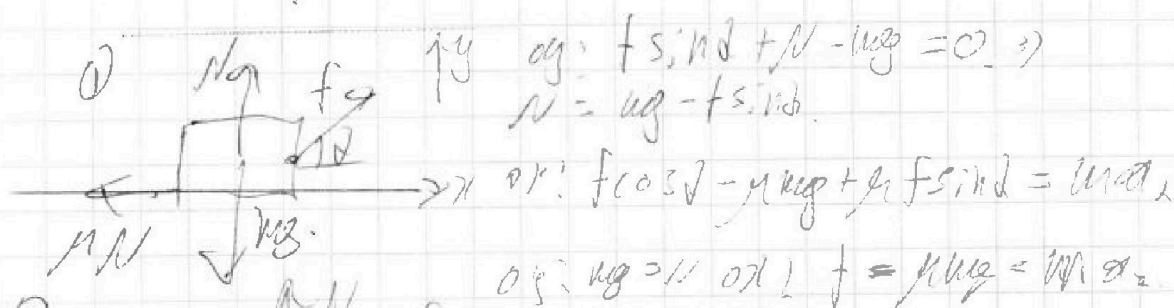 ① N f α y oy: f sinα + N - mg = 0 ⇒
N = mg - f sinα.
x ox: f cosα - μmg + μ f sinα = ma
μN mg.
oy: mg = N ox: f - μmg = m a₂